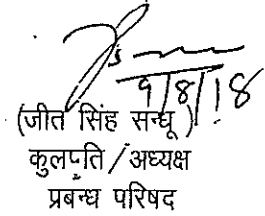 9/8/18
(जीत सिंह सन्धू)
कुलपति/अध्यक्ष
प्रबन्ध परिषद